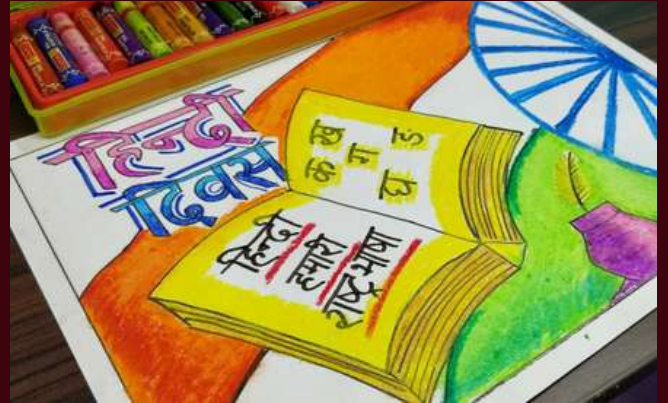 हिन्दी
दिवस
क ख
ग
घ ड
हिन्दी
हमारी
राष्ट्रभाषा